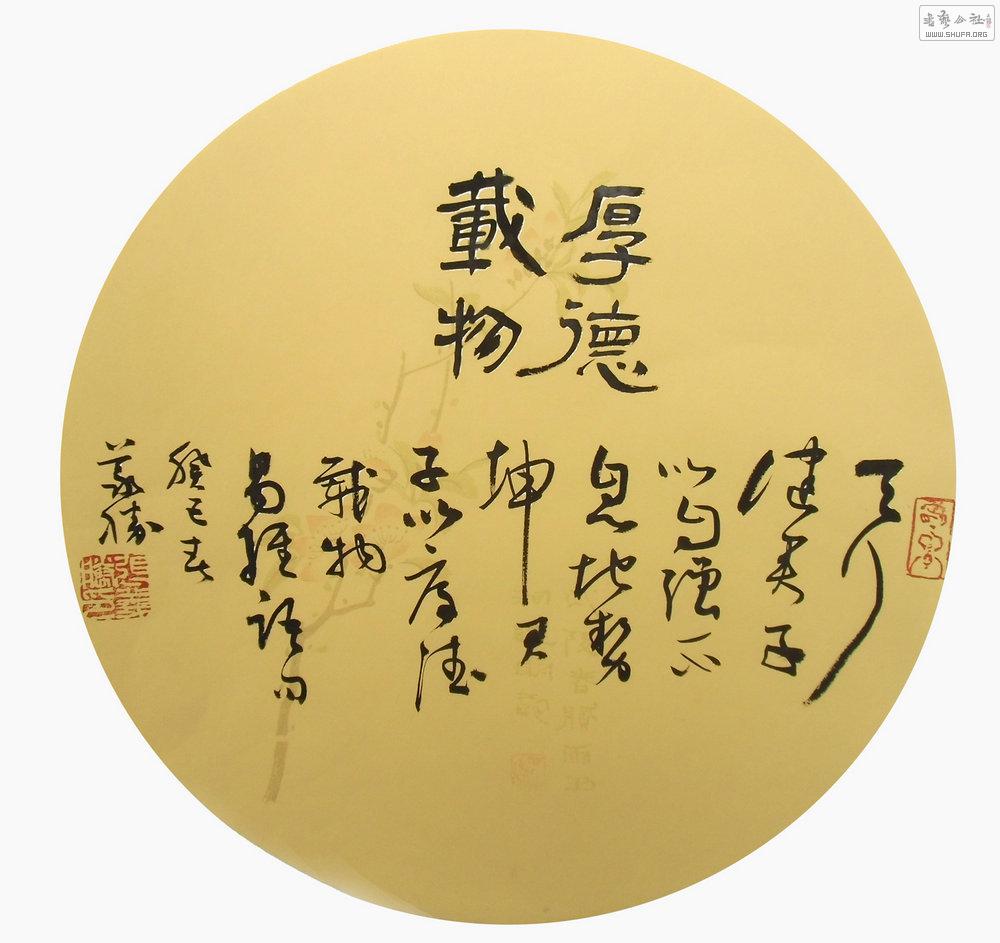 厚德
載物
天行
健君子
以自強不
息地勢
坤君
子以厚德
載物
易經語句
癸巳春
義勝
WWW.SHUFA.ORG